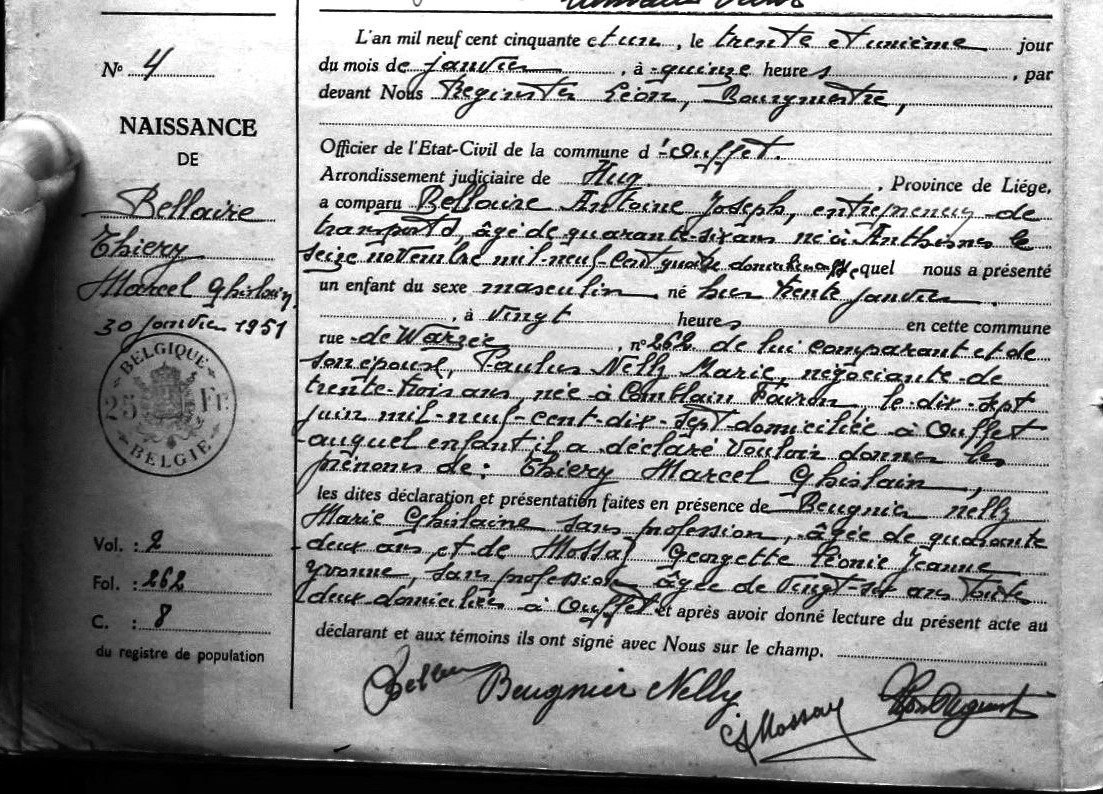 N° 4
NAISSANCE
DE
Bellaire
Thiery
Marcel Ghislain
30 janvier 1951
BELGIQUE
25 Fr.
BELGIE
Vol. : 2
Fol. : 262
C. : 8
du registre de population
L'an mil neuf cent cinquante et un, le trente et unième jour
du mois de janvier, à quinze heures, par
devant Nous Léon, Bourgmestre,
Officier de l'Etat-Civil de la commune d'Ouffet.
Arrondissement judiciaire de Huy, Province de Liége,
a comparu Bellaire Antoine Joseph, entrepreneur de
transports, âgé de quarante-six ans né à Anthisnes le
seize novembre mil-neuf-cent quatre domicilié à Ouffet lequel nous a présenté
un enfant du sexe masculin né hier trente janvier.
, à vingt heures en cette commune
rue de Warzée, n° 262 de lui comparant et de
son épouse, Paulus Nelly Marie, négociante de
trente-trois ans, née à Comblain Fairon le dix-sept
juin mil-neuf-cent-dix-sept domiciliée à Ouffet
auquel enfant il a déclaré vouloir donner les
prénoms de : Thiery Marcel Ghislain,
les dites déclaration et présentation faites en présence de Beugnier Nelly
Marie Ghislaine sans profession, âgée de quarante
deux ans et de Massay Georgette Léonie Jeanne
Yvonne, sans profession âgée de vingt-six ans toutes
deux domiciliées à Ouffet et après avoir donné lecture du présent acte au
déclarant et aux témoins ils ont signé avec Nous sur le champ.
Beugnier Nelly